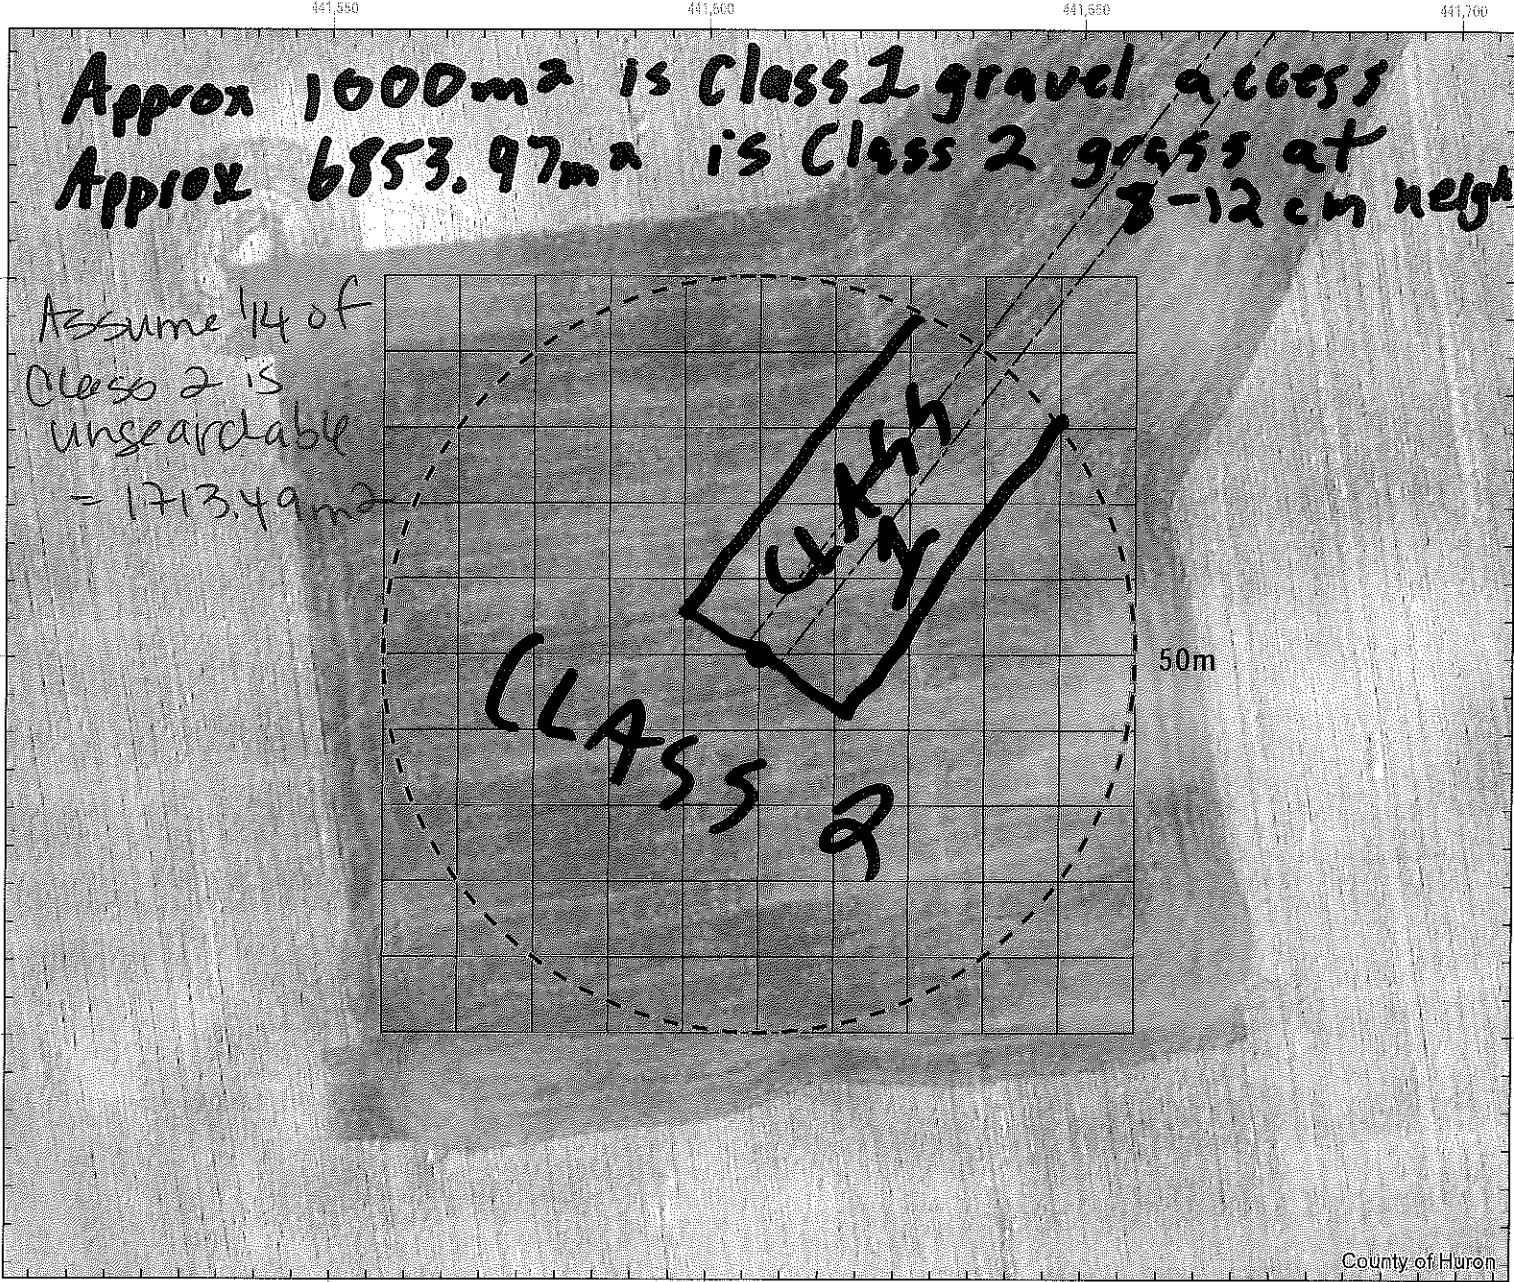 441,550 441,600 441,650 441,700
Approx 1000m² is Class 1 gravel access
Approx 6853.97m² is Class 2 grass at
8-12 cm heigh
Assume 1/4 of
Class 2 is
unsearchable
= 1713.49m²
50m
CLASS 2
County of Huron